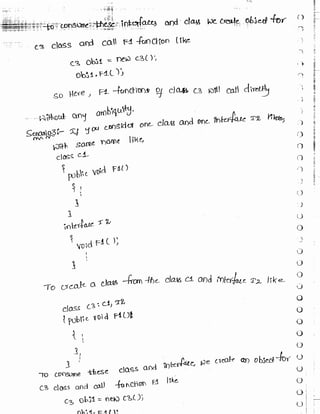 to consume these interfaces and class we create object for
c3 class and call F1 function like
c3 obj1 = new c3();
obj1.F1();
so Here, F1 function of class c3 will call directly
without any ambiguity.
Scenario3:- If you consider one class and one interface I2
with same name like,
class c1
{
public void F1()
{
}
}
interface I2
{
void F1();
}
To create a class from the class c1 and interface I2 like
class c3 : c1, I2
{ public void F1(){
{
}
}
To consume these class and interface, we create an object for
c3 class and call function F1 like
c3 obj1 = new c3();
obj1.F1()